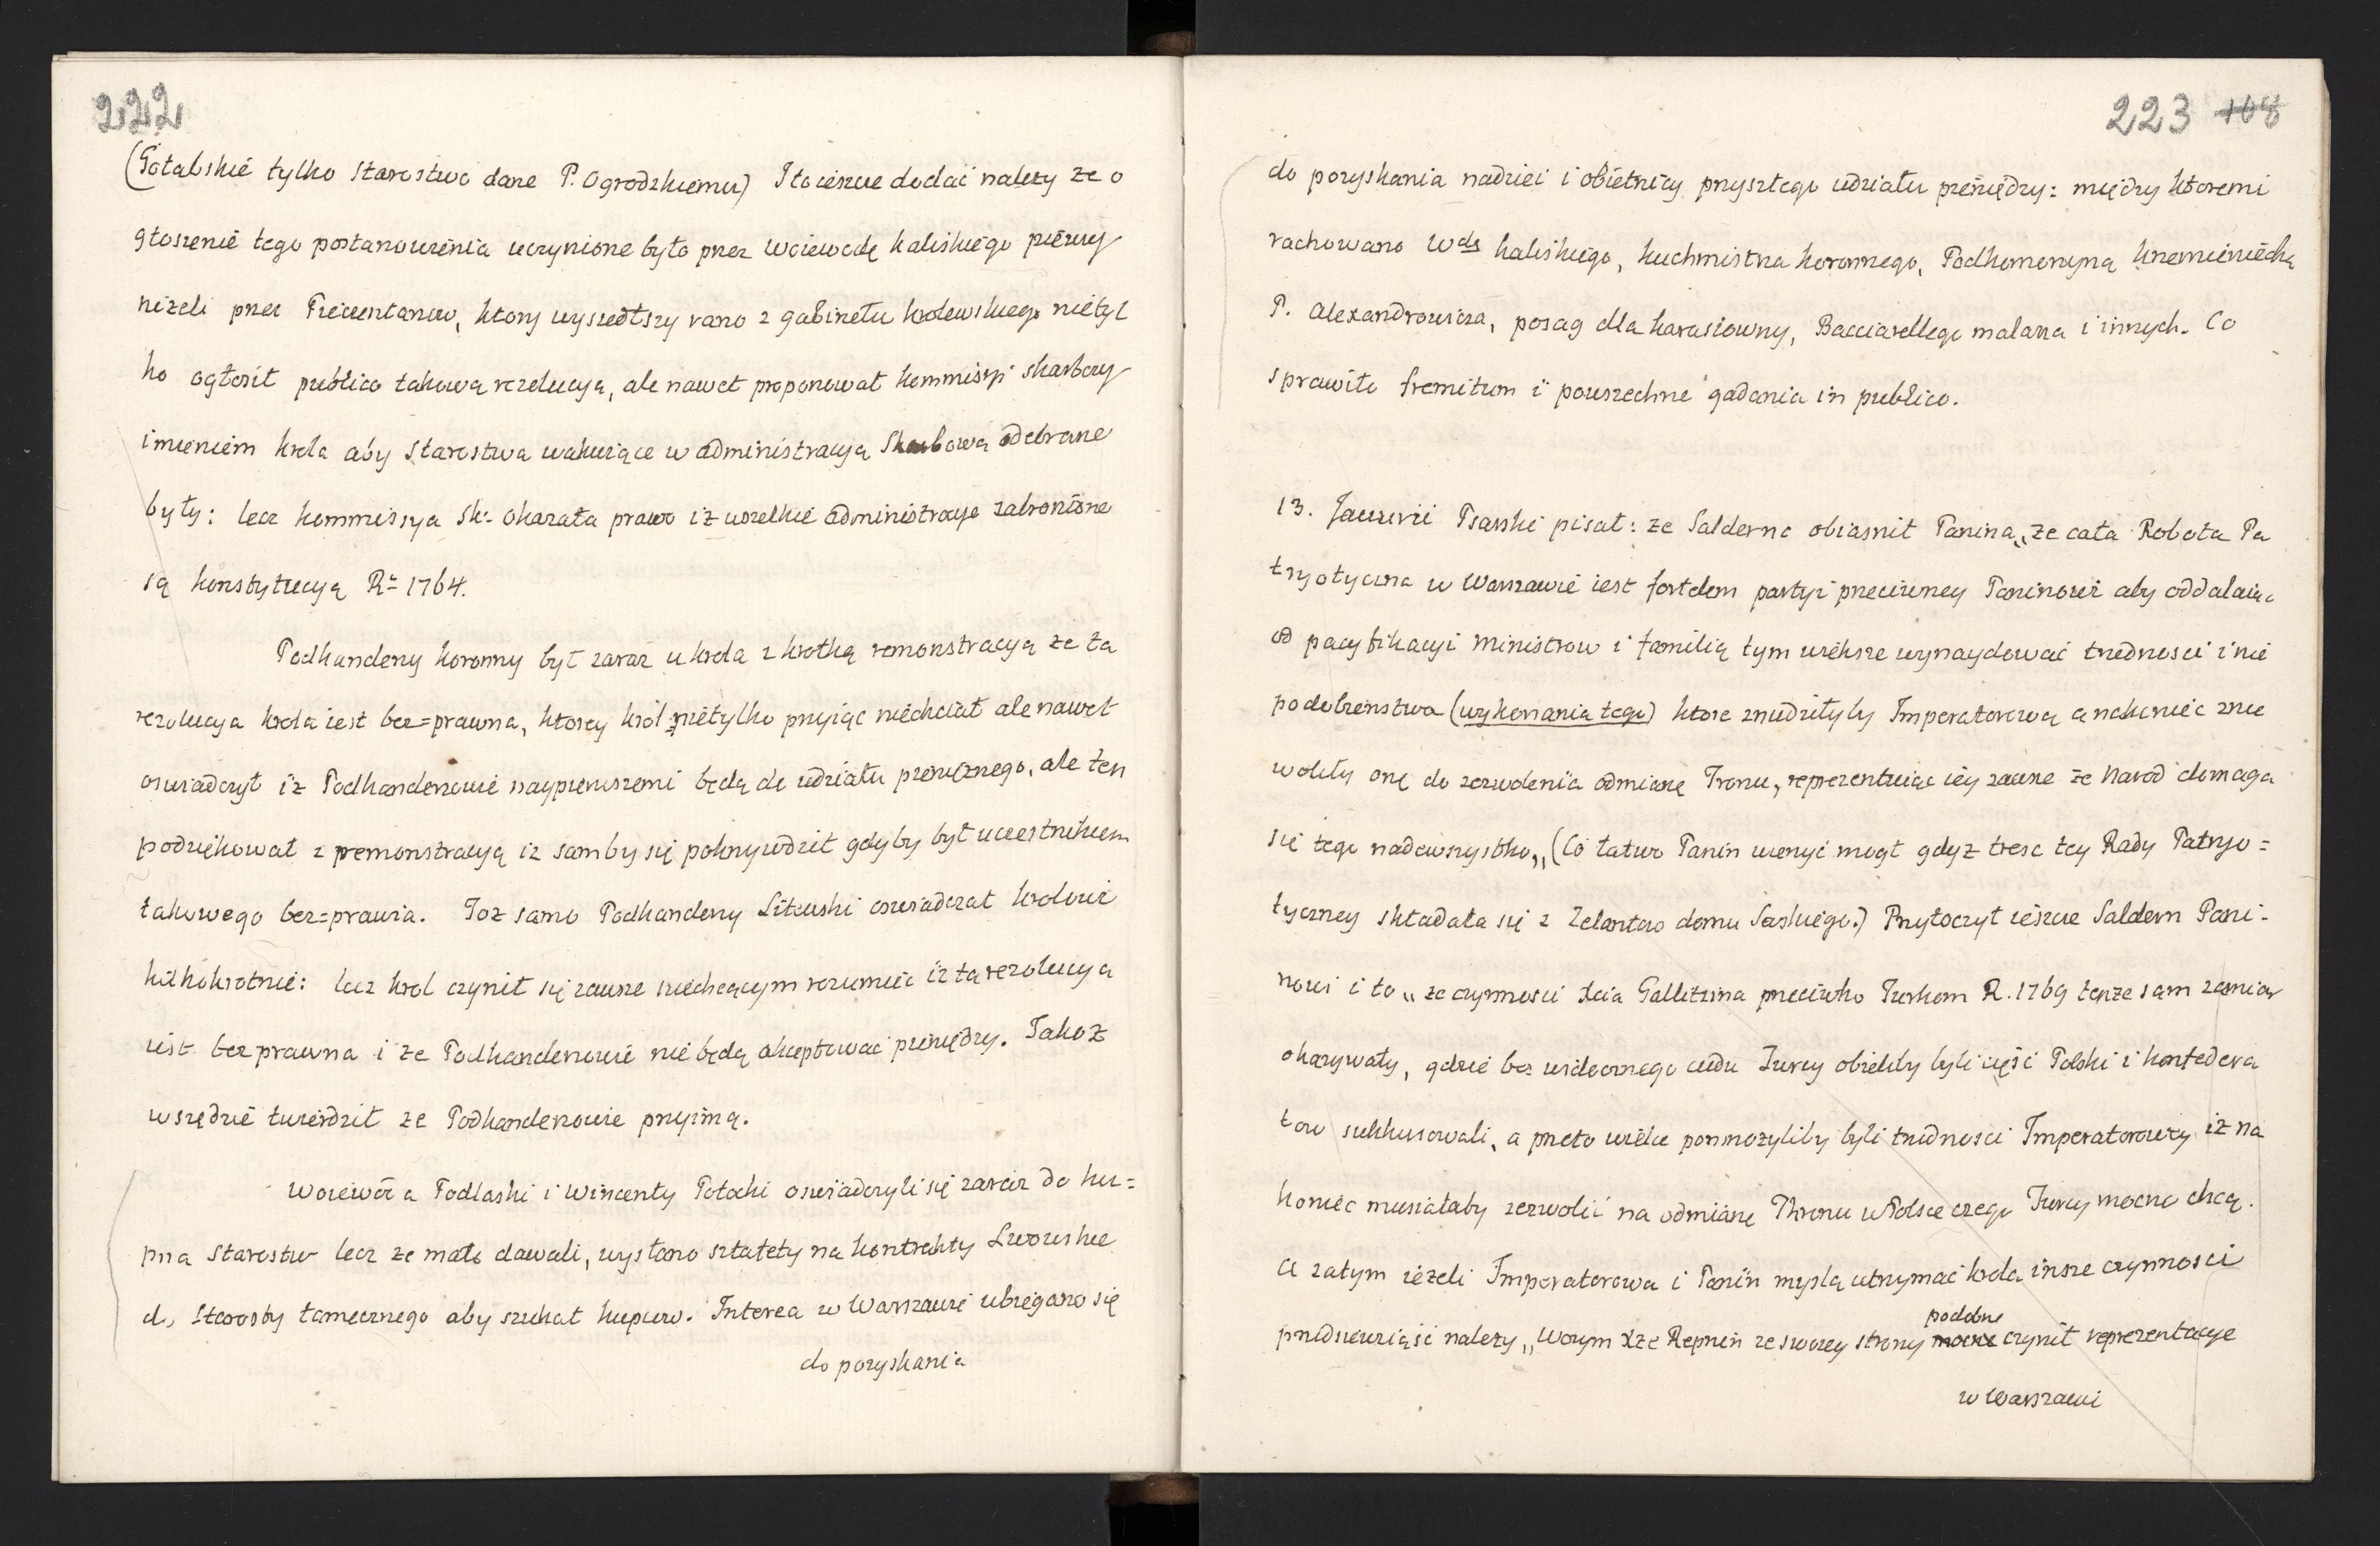 222
(Gołąbskie tylko Starostwo dane P. Ogrodzkiemu) I to ieszcze dodać należy ze o
głoszenie tego postanowienia uczynione było przez Woiewodę kaliskiego pierwey
nizeli przez Fricentanow, ktory wyszedłszy rano z gabinetu krolewskiego nietyl
ko ogłosił publico takową rezolucyą, ale nawet proponował kommissyi skarbowey
imieniem krola aby Starostwa wakuiące w administracyą Skarbową odebrane
były: lecz kommissya Sk: okazała prawo iz wszelkie administracye zabronione
są konstytucyą R: 1764.
Podkanclerzy koronny był zaraz u krola z krotką remonstracyą ze ta
rezolucya krola iest bez=prawna, ktorey król nietylko przyiąc niechciał ale nawet
oswiadczył iz Podkanclerzowie naypierwszemi będą do udziału pienięznego, ale ten
podziękował z premonstracyą iz samby się pokrzywdził gdyby był uczestnikiem
takowego bez=prawia. Toz samo Podkanclerzy Litewski oswiadczał krolowi
kilkokrotnie: lecz krol czynił się zawsze niechcącym rozumieć iz ta rezolucya
iest bez prawna i ze Podkanclerzowie nie będą akceptować pieniędzy. Takoz
wszędzie twierdził ze Podkanclerzowie przyimą.
Woiewoda Podlaski i Wincenty Potocki oswiadczyli się zaraz do ku=
pna Starostw lecz ze mało dawali, wysłano sztafety na kontrakty Lwowskie
do Starosty tamecznego aby szukał kupcow. Interea w Warszawie ubiegano się
do pozyskania
223 108
do pozyskania nadziei i obietnicy przyszłego udziału pieniędzy: między ktoremi
rachowano Wdę kaliskiego, kuchmistrza koronnego, Podkomorzyną krzemieniecką
P. Alexandrowicza, posag dla karasiowny, Bacciarellego malarza i innych. Co
sprawiło fremitum i powszechne gadania in publico.
13. Januarii Psarski pisał: ze Saldern obiasnił Panina „ze cała Robota Pa
tryotyczna w Warszawie iest fortelem partyi przeciwney Paninowi aby oddalaiąc
od pacyfikacyi Ministrow i familią tym większe wynaydować trudnosci i nie
podobienstwa (wykonania tego) ktore znudziłyby Imperatorową a nakoniec znie
woliły onę do zezwolenia odmianę Tronu, reprezentuiąc iey zawsze ze Narod domaga
się tego nadewszystko„ (Co łatwo Panin wierzyć mogł gdyz tresc tey Rady Patryo=
tyczney składała się z Zelantow domu Saskiego.) Przytoczył ieszcze Saldern Pani=
nowi i to „ze czynnosci Xcia Gallitzina przeciwko Turkom R. 1769 tenze sam zamiar
okazywały, gdzie bez widocznego cudu Turcy obieliby byli częsć Polski i konfedera
tow sukkursowali, a przeto wielce pomnozyliby byli trudnosci Imperatorowey iz na
koniec musiałaby zezwolić na odmianę Thronu w Polsce czego Turcy mocno chcą.
a zatym iezeli Imperatorowa i Panin myslą utrzymać krola insze czynnosci
przedsiewziąść nalezy„ Wczym Xze Repnin ze swoiey strony podobne czynił reprezentacye
w Warszawie